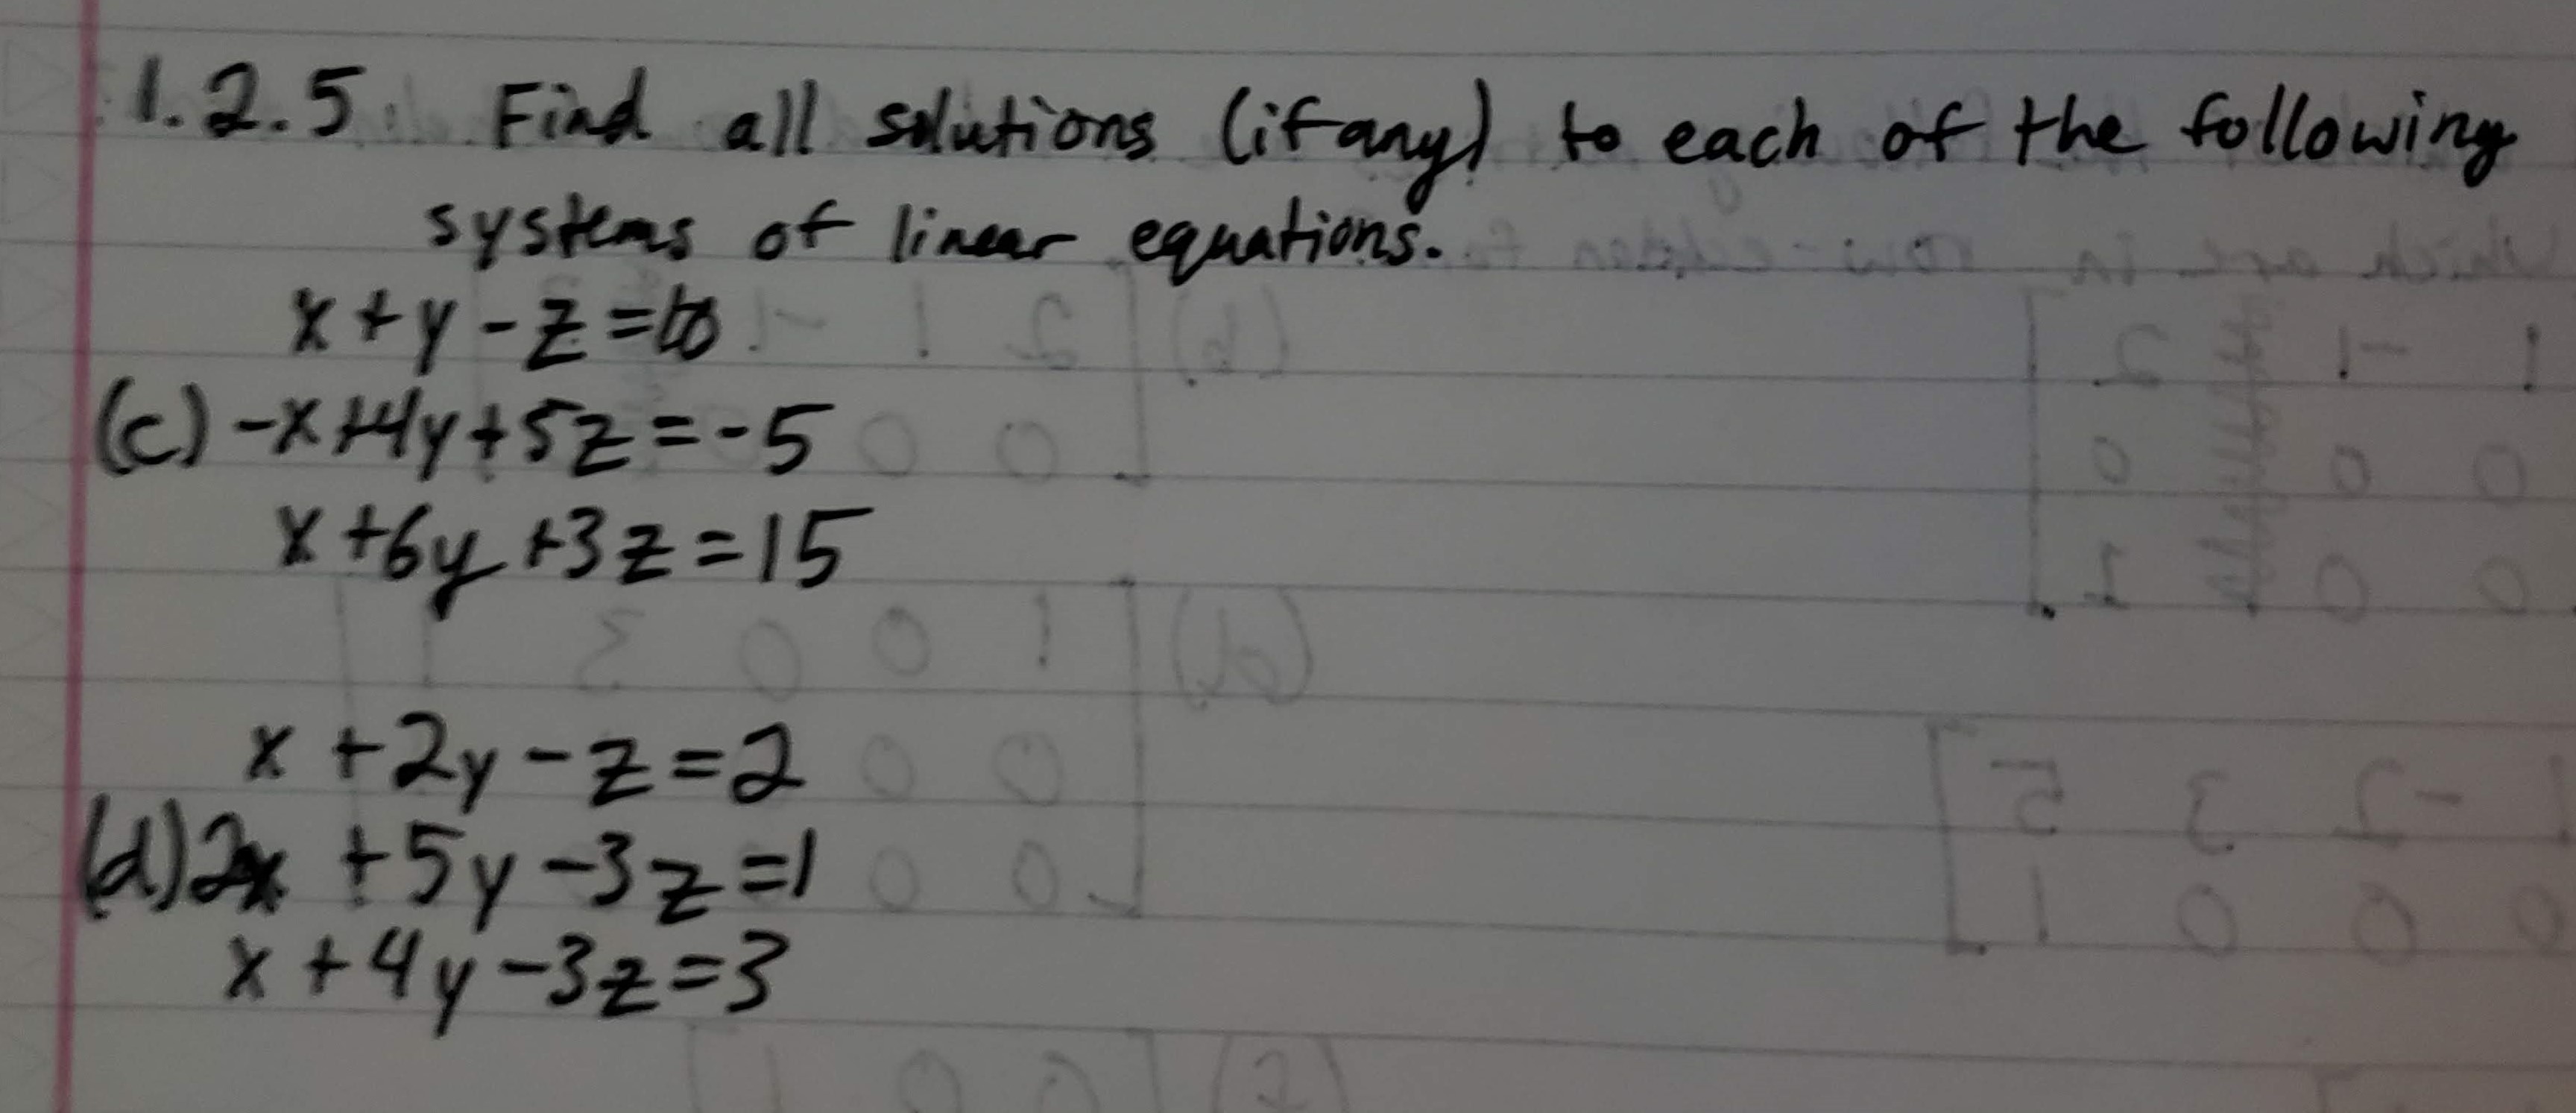 1.2.5 Find all solutions (if any) to each of the following
systems of linear equations.
x + y - z = 10
(c) -x + 4y + 5z = -5
x + 6y + 3z = 15
x + 2y - z = 2
(d) 2x + 5y - 3z = 1
x + 4y - 3z = 3